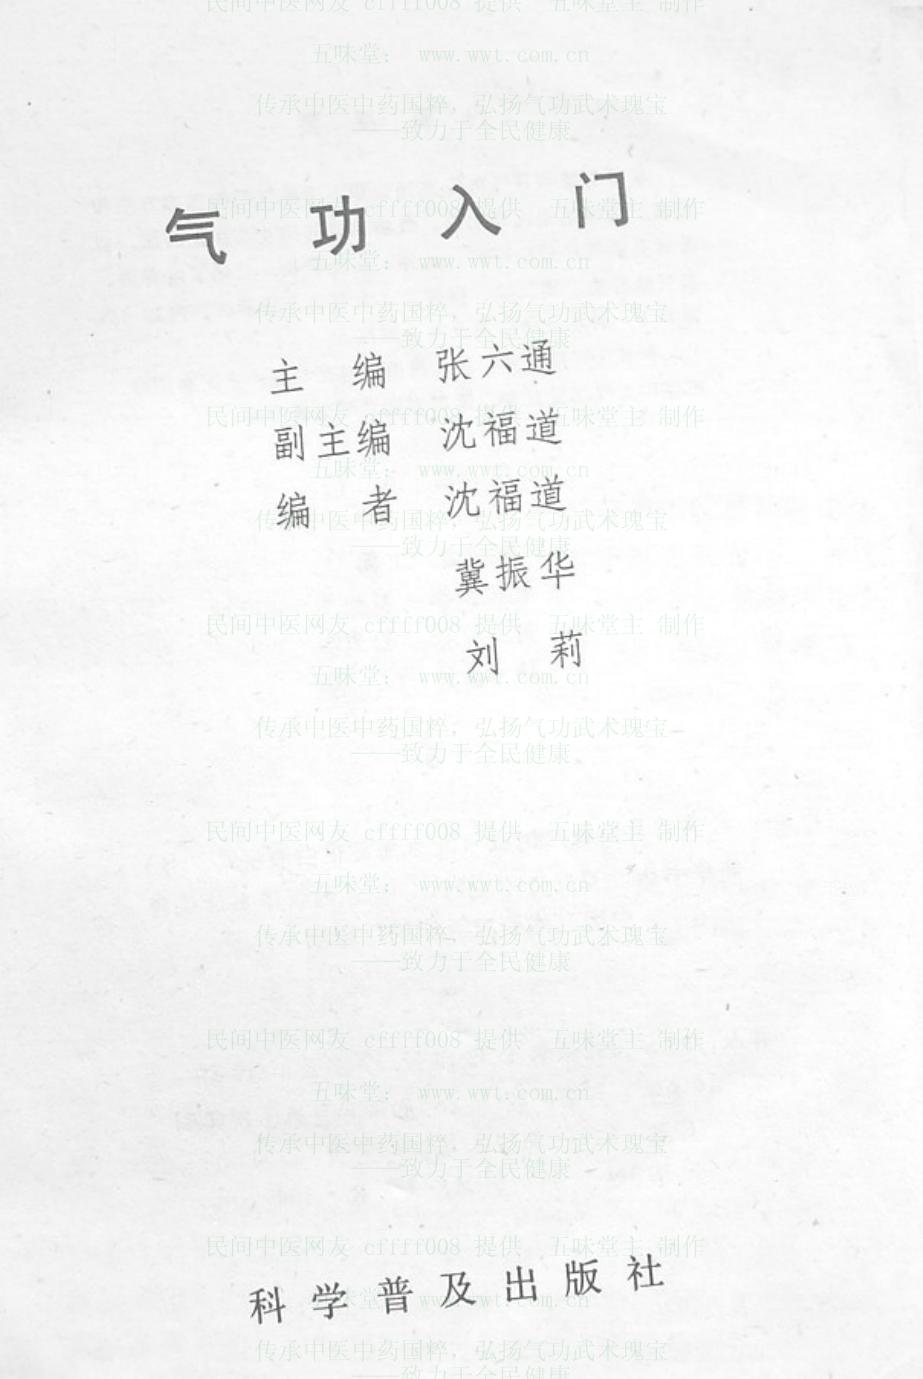 民间中医网友 cffff008 提供 五味堂主 制作
五味堂： www.wwt.com.cn
传承中医中药国粹，弘扬气功武术瑰宝
——致力于全民健康
气 功 入 门
民间中医网友 cffff008 提供 五味堂主 制作
五味堂： www.wwt.com.cn
传承中医中药国粹，弘扬气功武术瑰宝
——致力于全民健康
主 编 张六通
民间中医网友 cffff008 提供 五味堂主 制作
副主编 沈福道
五味堂： www.wwt.com.cn
编 者 沈福道
传承中医中药国粹，弘扬气功武术瑰宝
——致力于全民健康
冀振华
民间中医网友 cffff008 提供 五味堂主 制作
刘 莉
五味堂： www.wwt.com.cn
传承中医中药国粹，弘扬气功武术瑰宝
——致力于全民健康
民间中医网友 cffff008 提供 五味堂主 制作
五味堂： www.wwt.com.cn
传承中医中药国粹，弘扬气功武术瑰宝
——致力于全民健康
民间中医网友 cffff008 提供 五味堂主 制作
五味堂： www.wwt.com.cn
传承中医中药国粹，弘扬气功武术瑰宝
——致力于全民健康
民间中医网友 cffff008 提供 五味堂主 制作
科学普及出版社
五味堂： www.wwt.com.cn
传承中医中药国粹，弘扬气功武术瑰宝
——致力于全民健康